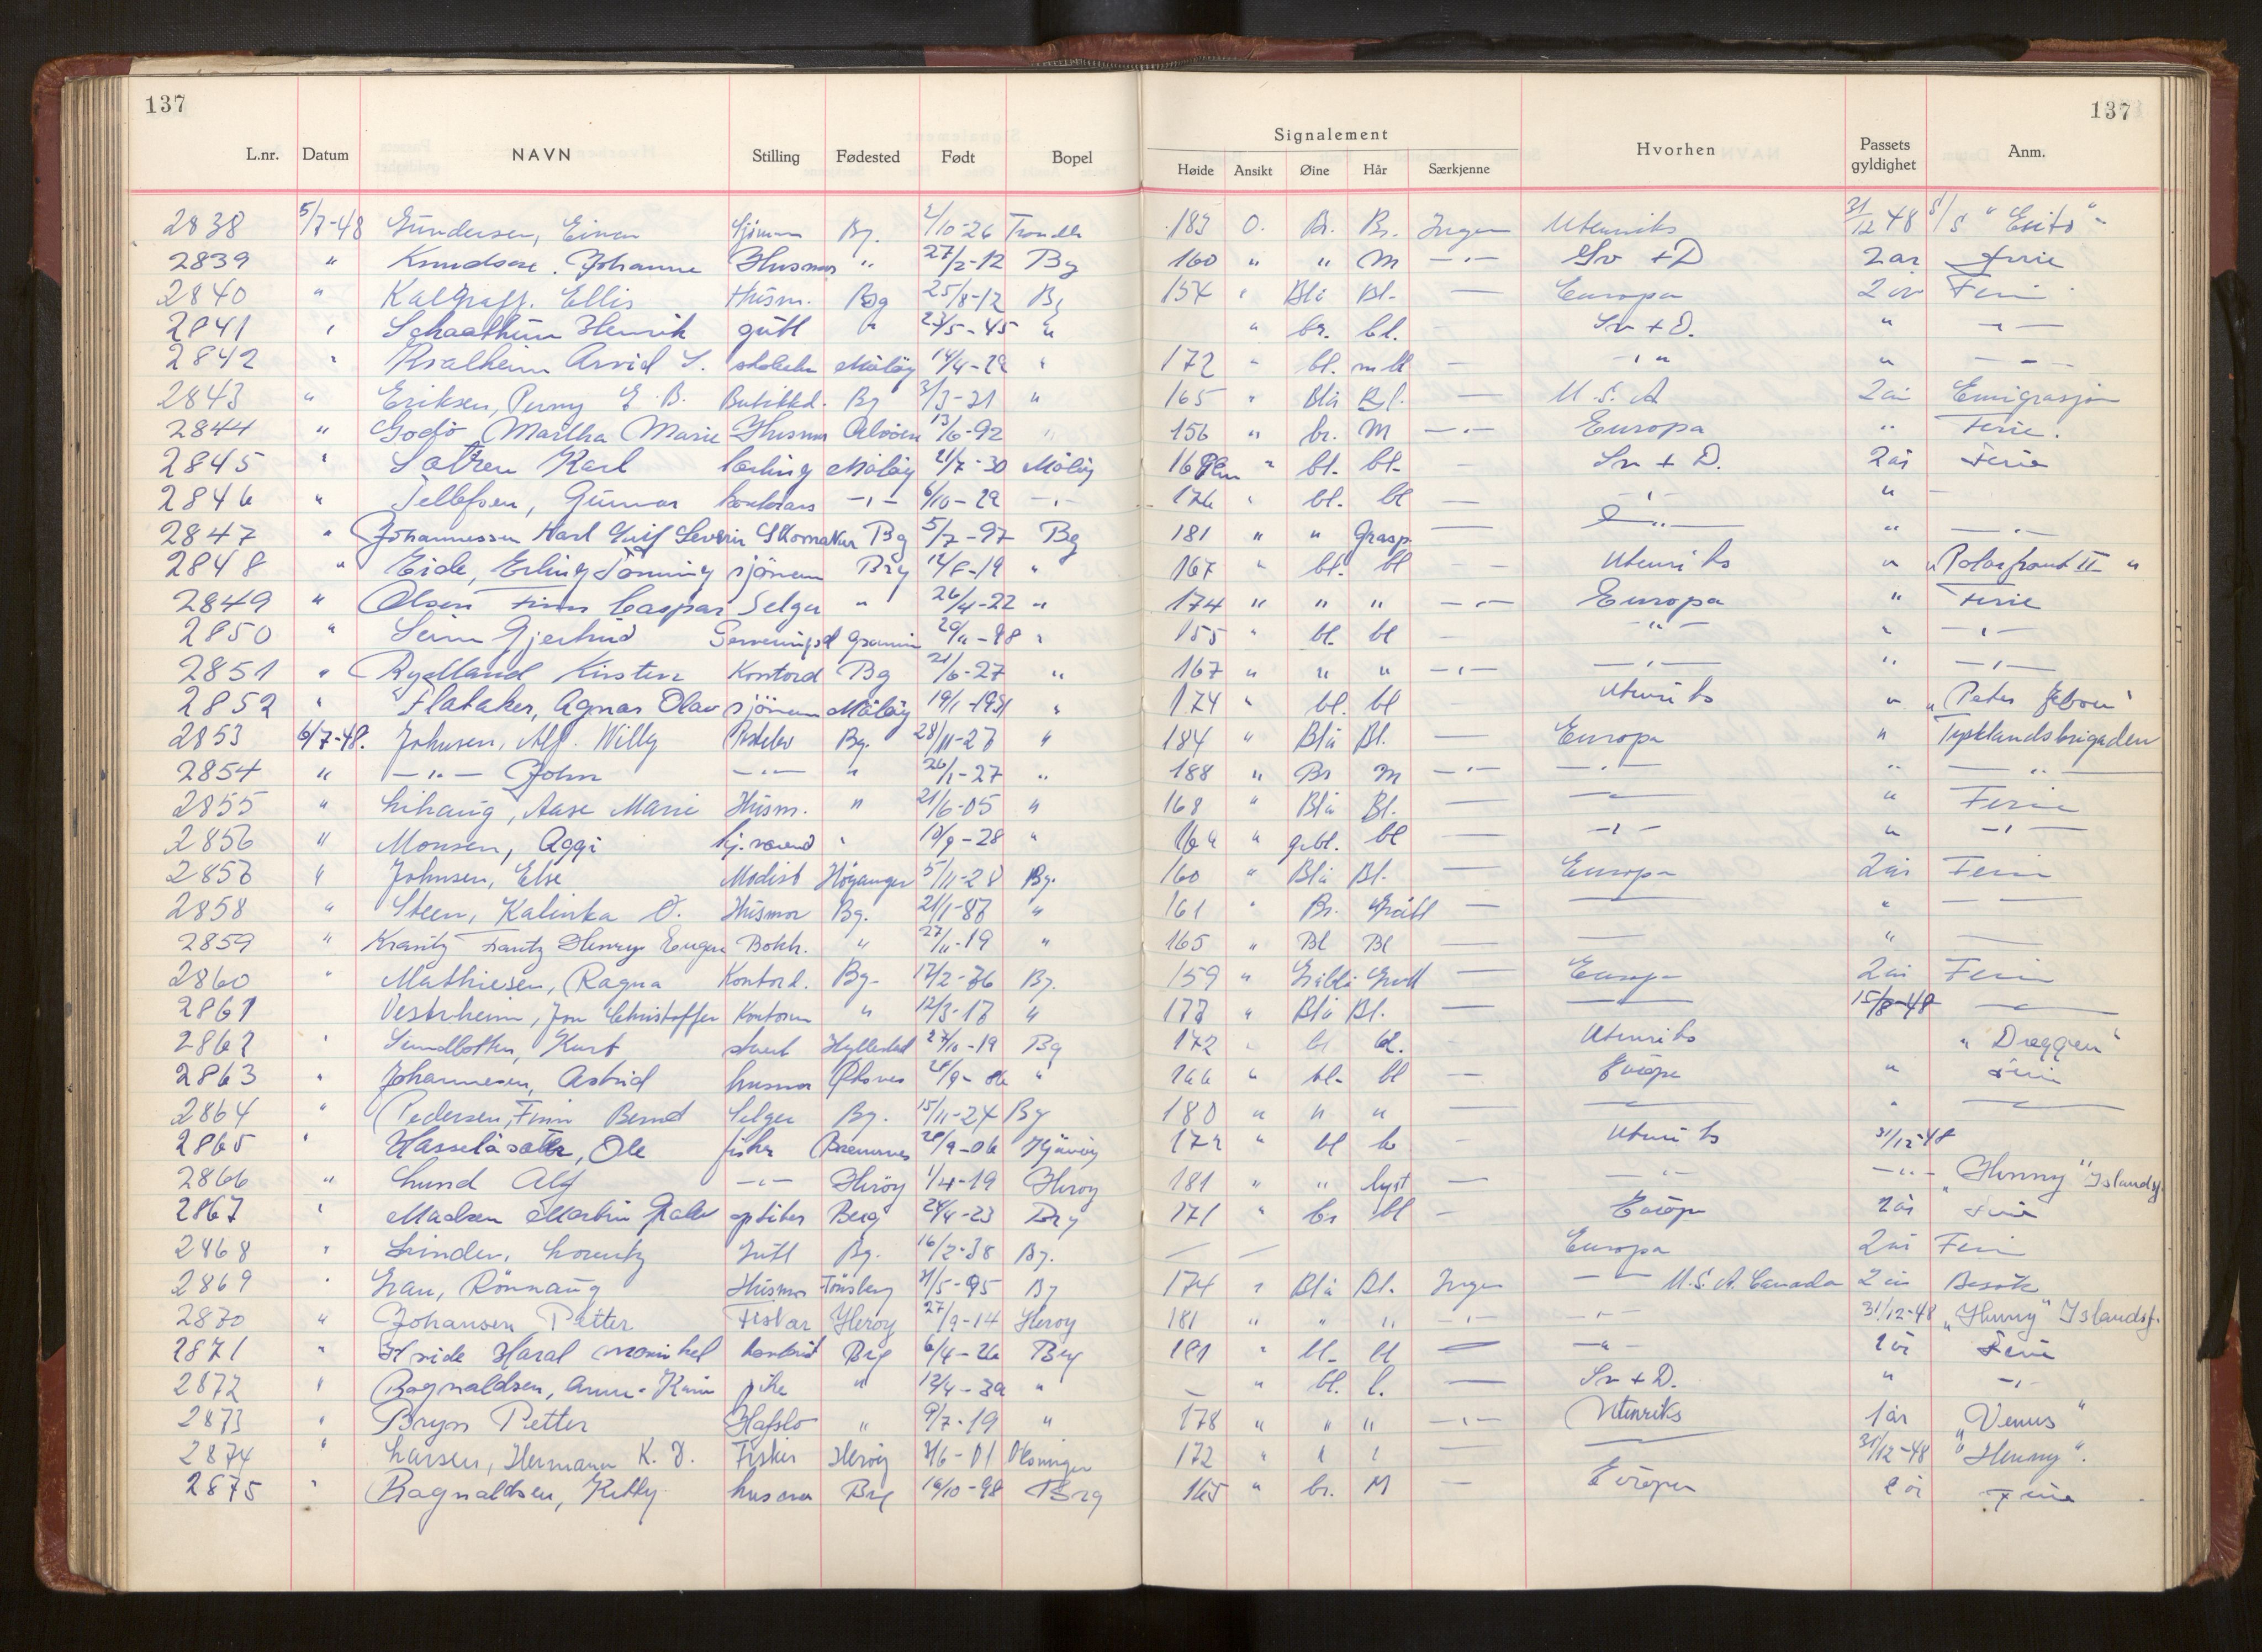 137
137
Signalement
L.nr. Datum NAVN Stilling Fødested Født Bopel Høide Ansikt Øine Hår Særkjenne Hvorhen Passets gyldighet Anm.
2838 5/7-48 Gundersen, Einar Sjømann Bg. 2/10-26 183 O. Br. Br. Ingen Utenriks 31/12 48 S/S "Esito"
2839 " Knudsen, Johanne Husmor " 27/2-12 Bg 160 " " M -"- Sv + D 2 år Ferie
2840 " Kalgraff, Ellis Husm. Bg 25/8-12 Bg 157 " Blå Bl. — Europa 2 år Ferie
2841 " Schaathun Henrik gutt " 23/5-45 " " br. bl. Sv + D. " -"-
2842 " Kvalheim Arvid S. Måløy 14/4-29 " 172 " bl. m bl — -"- " -
2843 " Eriksen, Perny E. B. Butikkd. Bg 3/3-21 " 165 " Blå Bl. — U.S.A 2 år Emigrasjon
2844 " Godø Martha Marie Husmor Alvøen 13/6-92 " 156 " br. M -"- Europa " Ferie.
2845 " Sætren Karl lærling Måløy 21/7-30 Måløy " bl. bl. - Sv + D. 2 år Ferie
2846 " Tellefsen, Gunnar -"- 6/10-29 -"- 176 " bl. bl — -"- " -
2847 " Johannessen Karl Leif Severin Skomaker Bg 5/7-97 Bg 181 " " Gråsp. — -"- " -"-
2848 " Eide, Erling Tonning sjømann Brg 19 " 167 " bl. bl - - Utenriks " "Polarfront II"
2849 " Olsen Finn Caspar Selger " 26/4-22 " 174 " " " -"- Europa " Ferie
2850 " Seim Gjertrud Serveringsd " 155 " bl. bl — -"- " -"-
2851 " Rydland Kirsten Kontord Bg 21/6-27 " 167 " " " -"- -"- " -"-
2852 " Flataker, Agnar Olav sjømann Måløy 19/1-1931 " 174 " bl. bl Utenriks " "Peter Jebsen"
2853 6/7-48. Johnsen, Alf. Willy Bg. 28/11-27 " 184 " Blå Bl. — Europa " Tysklandsbrigaden
2854 " -"- John -"- " 26/1-27 " 188 " Br M -"- -"- " -"-
2855 " Lihaug, Aase Marie Husm. " 21/6-05 " 168 " Blå Bl. — — " Ferie
2856 " Monsen, Aggi " 10/9-28 " " gr.bl. bl — -"- " -"-
2857 " Johnsen, Else Modist Høyanger 5/11-28 Bg. 160 " Blå Bl. — Europa 2 år Ferie
2858 " Steen, Kalinka O. Husmor Bg. 21/1-87 " 161 " Br. Grått — — " —
2859 " Krantz Frantz Henry Eugen Bokh. " 27/11-19 " 165 " Bl Bl — — " —
2860 " Mathiesen, Ragna Kontord. Bg. 17/2-26 Bg. 159 " Gråblå — Europa 2 år Ferie
2861 Vestrheim, Jon Christoffer Kontorm " 12/3-17 " 177 " Blå Bl. — — 15/8-48 —
2862 " Kurt stuert Hyllestad 27/11-19 Bg 172 " bl bl. - Utenriks "Dræggen"
2863 " Johannesen, Astrid husmor 28/9-06 " 166 " bl. bl — Europa " Ferie
2864 " Pedersen, Finn Bernd Selger Bg. 15/11-24 Bg 180 " " " — — " —
2865 " Hasselåsæter, Ole fisker Bremsnes 28/9-06 172 " bl - Utenriks 31/12-48
2866 " Lund Alf -"- Herøy 1/4-19 Herøy 181 " " lyst — -"- -"- "Henny" Islandsf.
2867 " Madsen Martin optiker Berg 24/4-23 Brg 171 " br bl - Europa 2 år Ferie
2868 " Linder, Lorentz Gutt Bg. 16/2-38 Bg. — — Europa 2 år Ferie
2869 " Grau, Rønnaug Husmor Tønsberg 31/5-95 Bg 174 " Blå Bl. Ingen — U.S.A. Canada 2 år Besøk
2870 " Johansen Petter Fisker Herøy 27/9-14 Herøy 181 " " " -"- -"- 31/12-48 "Henny" Islandsf.
2871 " Brg 6/4-26 Brg 181 " bl. bl — -"- 2 år Ferie
2872 " Ragnaldsen, Anne-Karin pike " 12/4-39 " — " bl. l. — Sv + D. " -"-
2873 " Bryn Petter Hafslo " 9/7-19 " 178 " " " -"- Utenriks 1 år "Venus"
2874 " Larsen, Hermann K. D. Fisker Herøy 01 172 " " " — — 31/12-48 "Henny".
2875 " Ragnaldsen, Kitty husmor Brg 16/10-98 Brg 165 " br. M — Europa 2 år Ferie